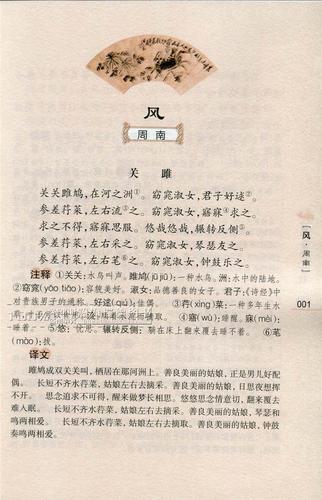 风
周南
关雎
关关雎鸠，在河之洲①。窈窕淑女，君子好逑②。
参差荇菜，左右流之③。窈窕淑女，寤寐④求之。
求之不得，寤寐思服。悠哉悠哉，辗转反侧⑤。
参差荇菜，左右采之。窈窕淑女，琴瑟友之。
参差荇菜，左右芼之⑥。窈窕淑女，钟鼓乐之。
注释 ①关关：水鸟叫声。雎鸠(jū jiū)：一种水鸟。洲：水中的陆地。
②窈窕(yǎo tiǎo)：容貌美好。淑女：品德善良的女子。君子：《诗经》中
对贵族男子的通称。好逑(qiú)：佳偶。③荇(xìng)菜：一种多年生水
④寤(wù)：睡醒。寐(mèi)：
睡着。⑤悠：忧思。辗转反侧：躺在床上翻来覆去睡不着。⑥芼
(mào)：拔。
译文
雎鸠成双关关叫，栖居在那河洲上。善良美丽的姑娘，正是男儿好配
偶。长短不齐水荇菜，姑娘左右去摘采。善良美丽的姑娘，日思夜想挥
不开。思念追求不可得，醒来做梦长相思。悠悠思念情意切，翻来覆去
难入眠。长短不齐水荇菜，姑娘左右去摘采。善良美丽的姑娘，琴瑟和
鸣两相爱。长短不齐水荇菜，姑娘左右去摘取。善良美丽的姑娘，钟鼓
奏鸣两相爱。
【风·周南】
001